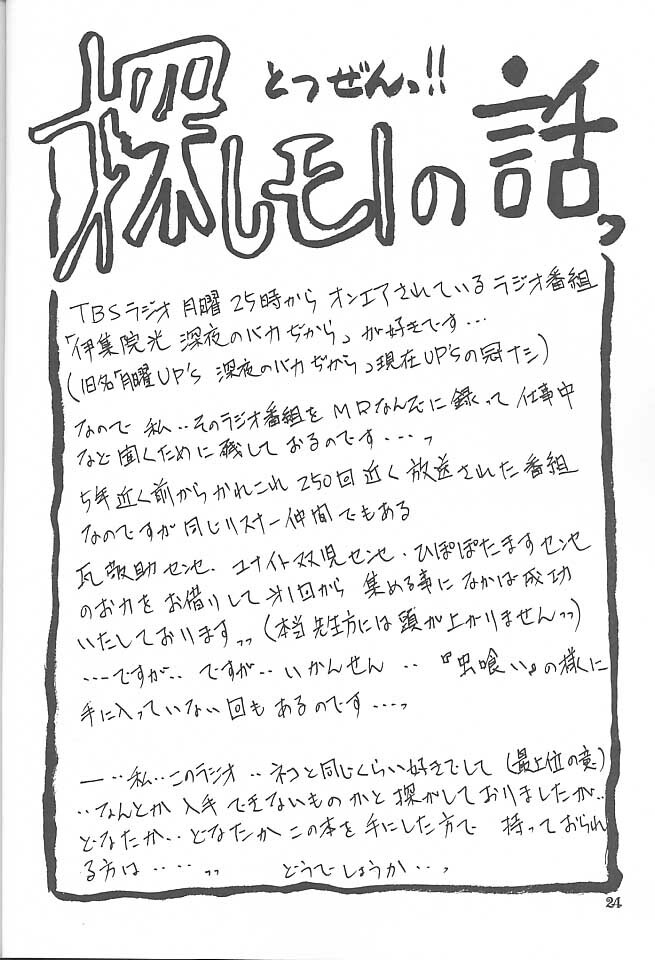 とつぜんっ!!
探しモノの話っ
TBSラジオ 月曜 25時から オンエアされている ラジオ番組
「伊集院光 深夜のバカぢから」が好きです…
(旧名「月曜UP'S 深夜のバカぢから」現在UP'Sの冠ナシ)
なので 私‥そのラジオ番組を MDなんぞに録って 仕事中
など聞くために残しておるのです…‥っ
5年近く前から かれこれ 250回近く 放送された番組
なのですが 同じリスナー仲間でもある
瓦敬助センセ、ユナイト双児センセ・ひぽぽたますセンセ
のお力を お借りして 第1回から 集める事に なかば成功
いたしております っっ (本当 先生方には 頭が上がりませんっっ)
…‥ですが‥ ですが‥ いかんせん ‥ 『虫喰い』の様に
手に入っていない 回も あるのです…‥っ
― ‥私‥このラジオ ‥ネコと同じくらい好きでして (最上位の意)
‥なんとか 入手 できないもの かと 探がしておりましたが‥
どなたか‥ どなたか この本を手にした方で 持っておられ
る方は ‥‥ っっ どうでしょうか‥っ
24